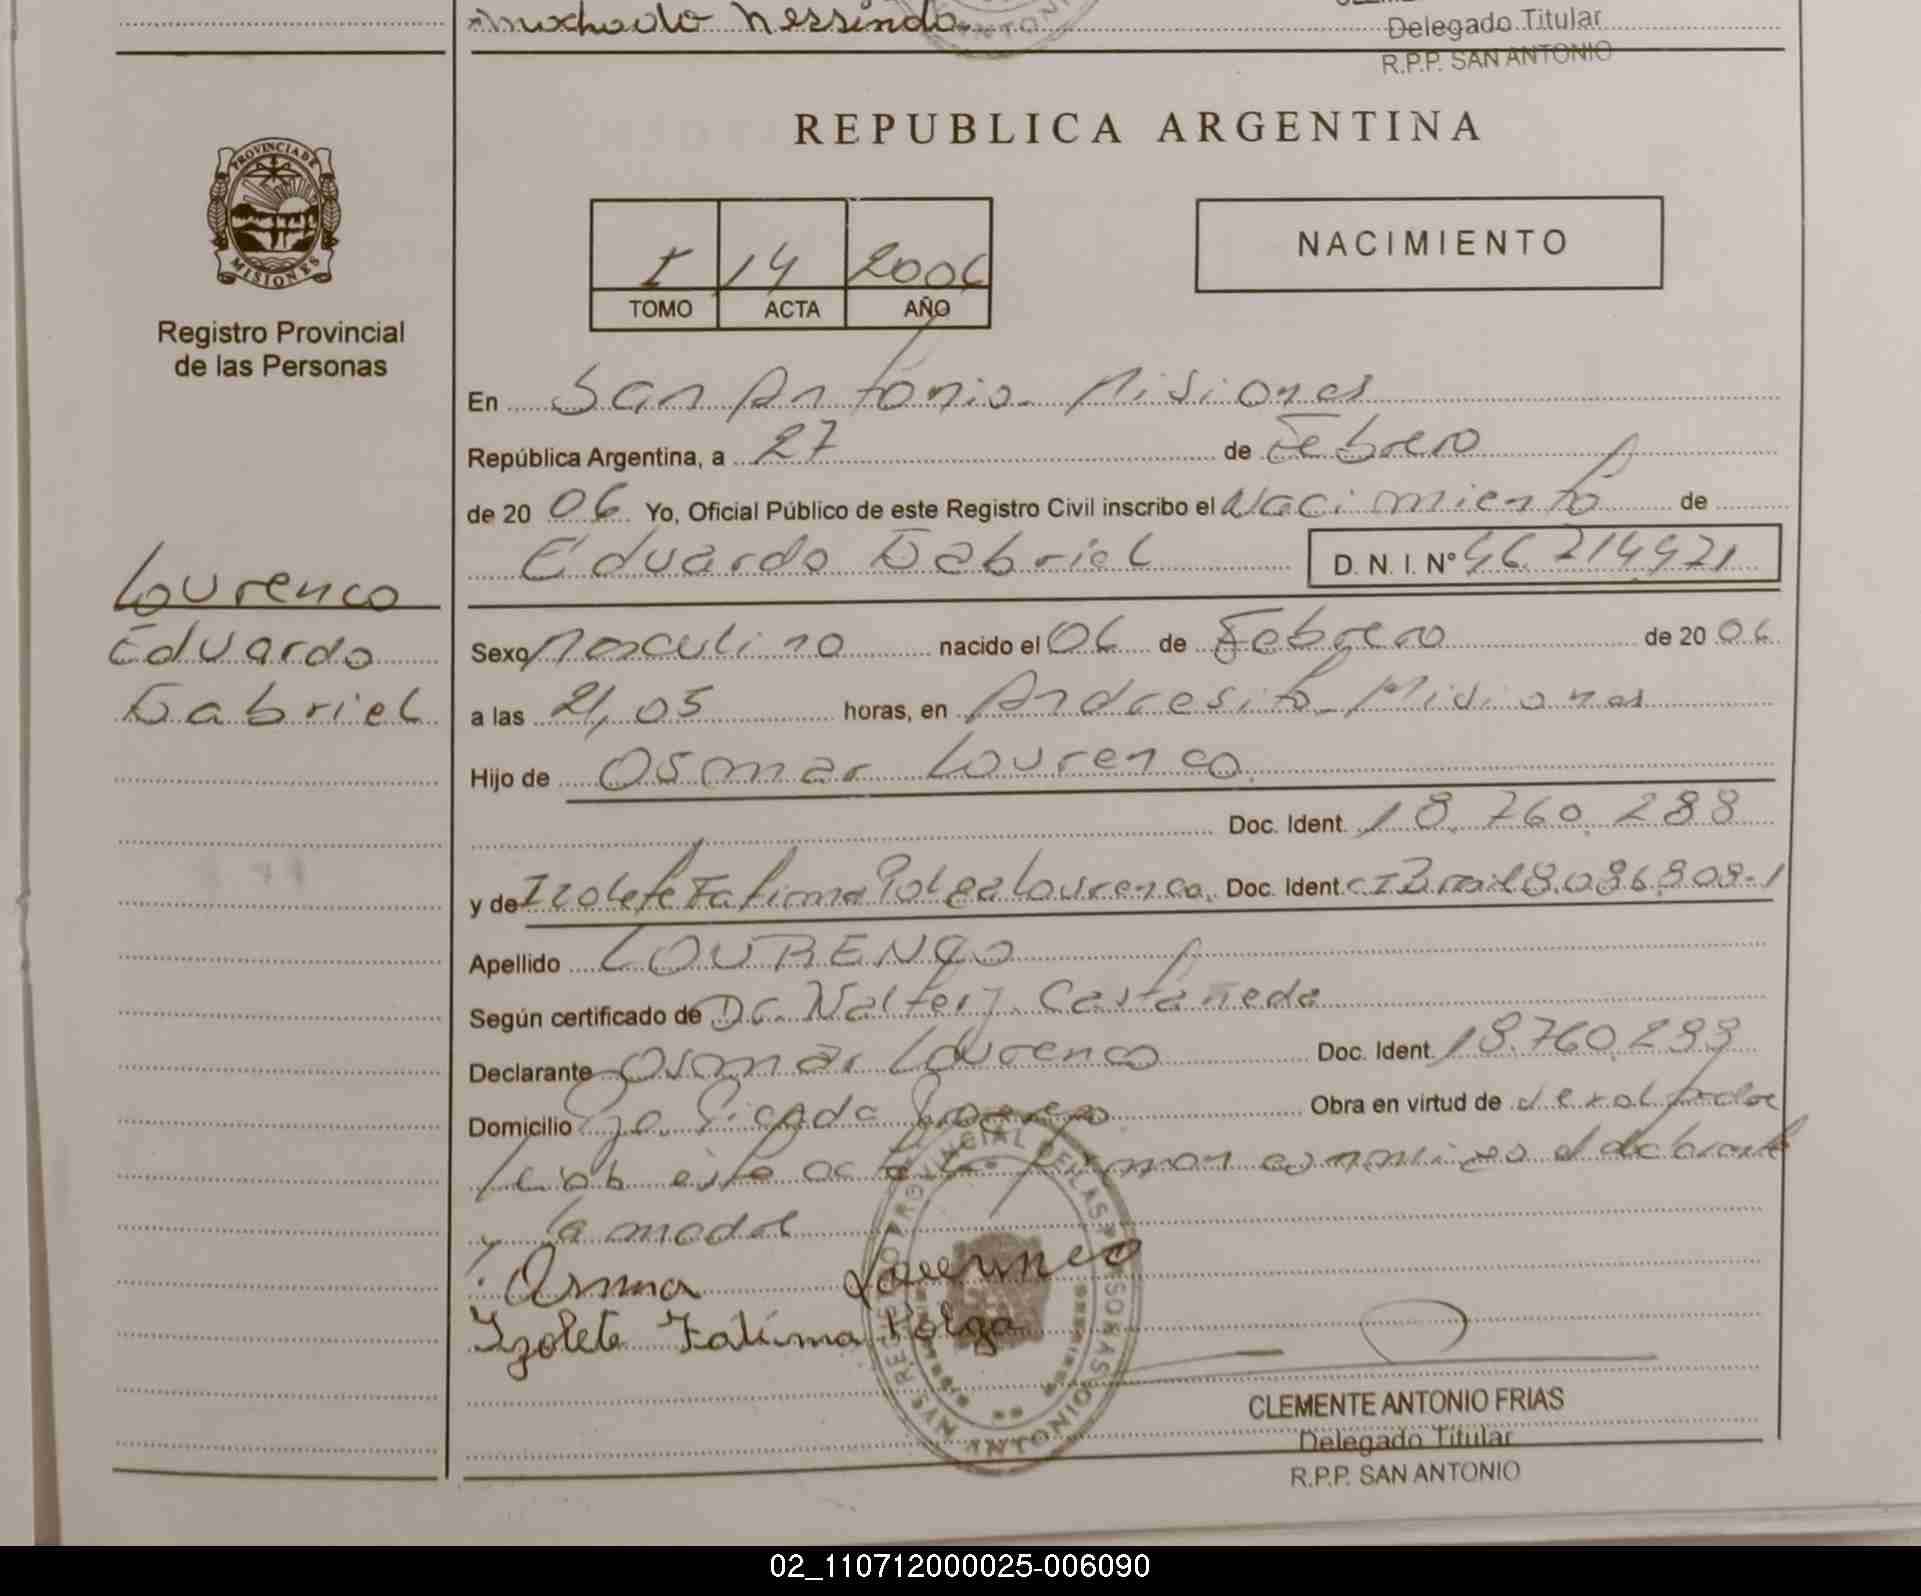 Machado Nessindo
Delegado Titular
R.P.P. SAN ANTONIO
REPUBLICA ARGENTINA
PROVINCIA DE
MISIONES
Registro Provincial
de las Personas
I 14 2006
TOMO ACTA AÑO
NACIMIENTO
En San Antonio - Misiones
República Argentina, a 27 de Febrero
de 20 06 Yo, Oficial Público de este Registro Civil inscribo el Nacimiento de
Eduardo Gabriel D. N. I. Nº 46.214.421
Lourenco
Eduardo
Gabriel
Sexo Masculino nacido el 06 de Febrero de 20 06
a las 21,05 horas, en Andresito - Misiones
Hijo de Osmar Lourenco.
Doc. Ident. 18.760.288
y de Izolete Fatima Polga Lourenco, Doc. Ident. CI Brasil 8.086.808-1
Apellido LOURENCO
Según certificado de Dr. Walter J. Castañeda
Declarante Osmar Lourenco Doc. Ident. 18.760.288
Domicilio Picada Doc. Obra en virtud de
este acta firman conmigo el declarante
y la madre
Osmar Lourenco
Izolete Fatima Polga
REGISTRO PROVINCIAL DE LAS PERSONAS
SAN ANTONIO
CLEMENTE ANTONIO FRIAS
Delegado Titular
R.P.P. SAN ANTONIO
02_110712000025-006090